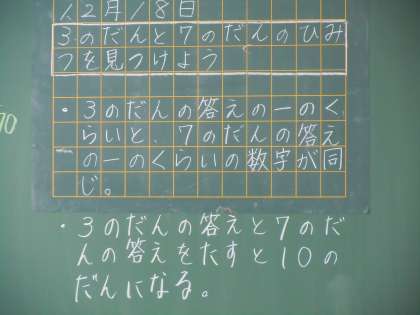 12月18日
3のだんと7のだんのひみ
つを見つけよう
・3のだんの答えの一のく
らいと、7のだんの答え
の一のくらいの数字が同
じ。
・3のだんの答えと7のだ
んの答えをたすと10の
だんになる。
70